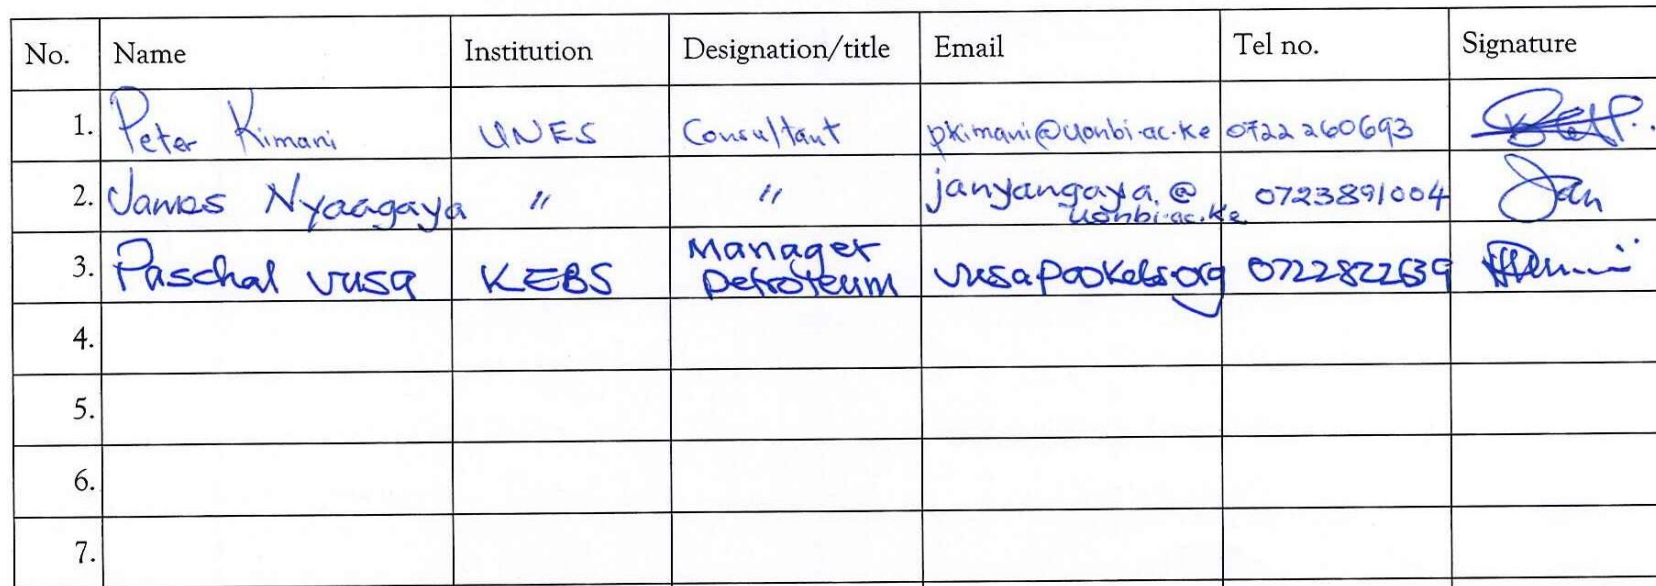 No. Name Institution Designation/title Email Tel no. Signature
1. Peter Kimani UNES Consultant pkimani@uonbi.ac.ke 0722 260693
2. James Nyaagaya " " janyangaya.@ 0723891004
uonbi.ac.ke
3. Paschal vusa KEBS Manager
Petroleum 0722822639
4.
5.
6.
7.